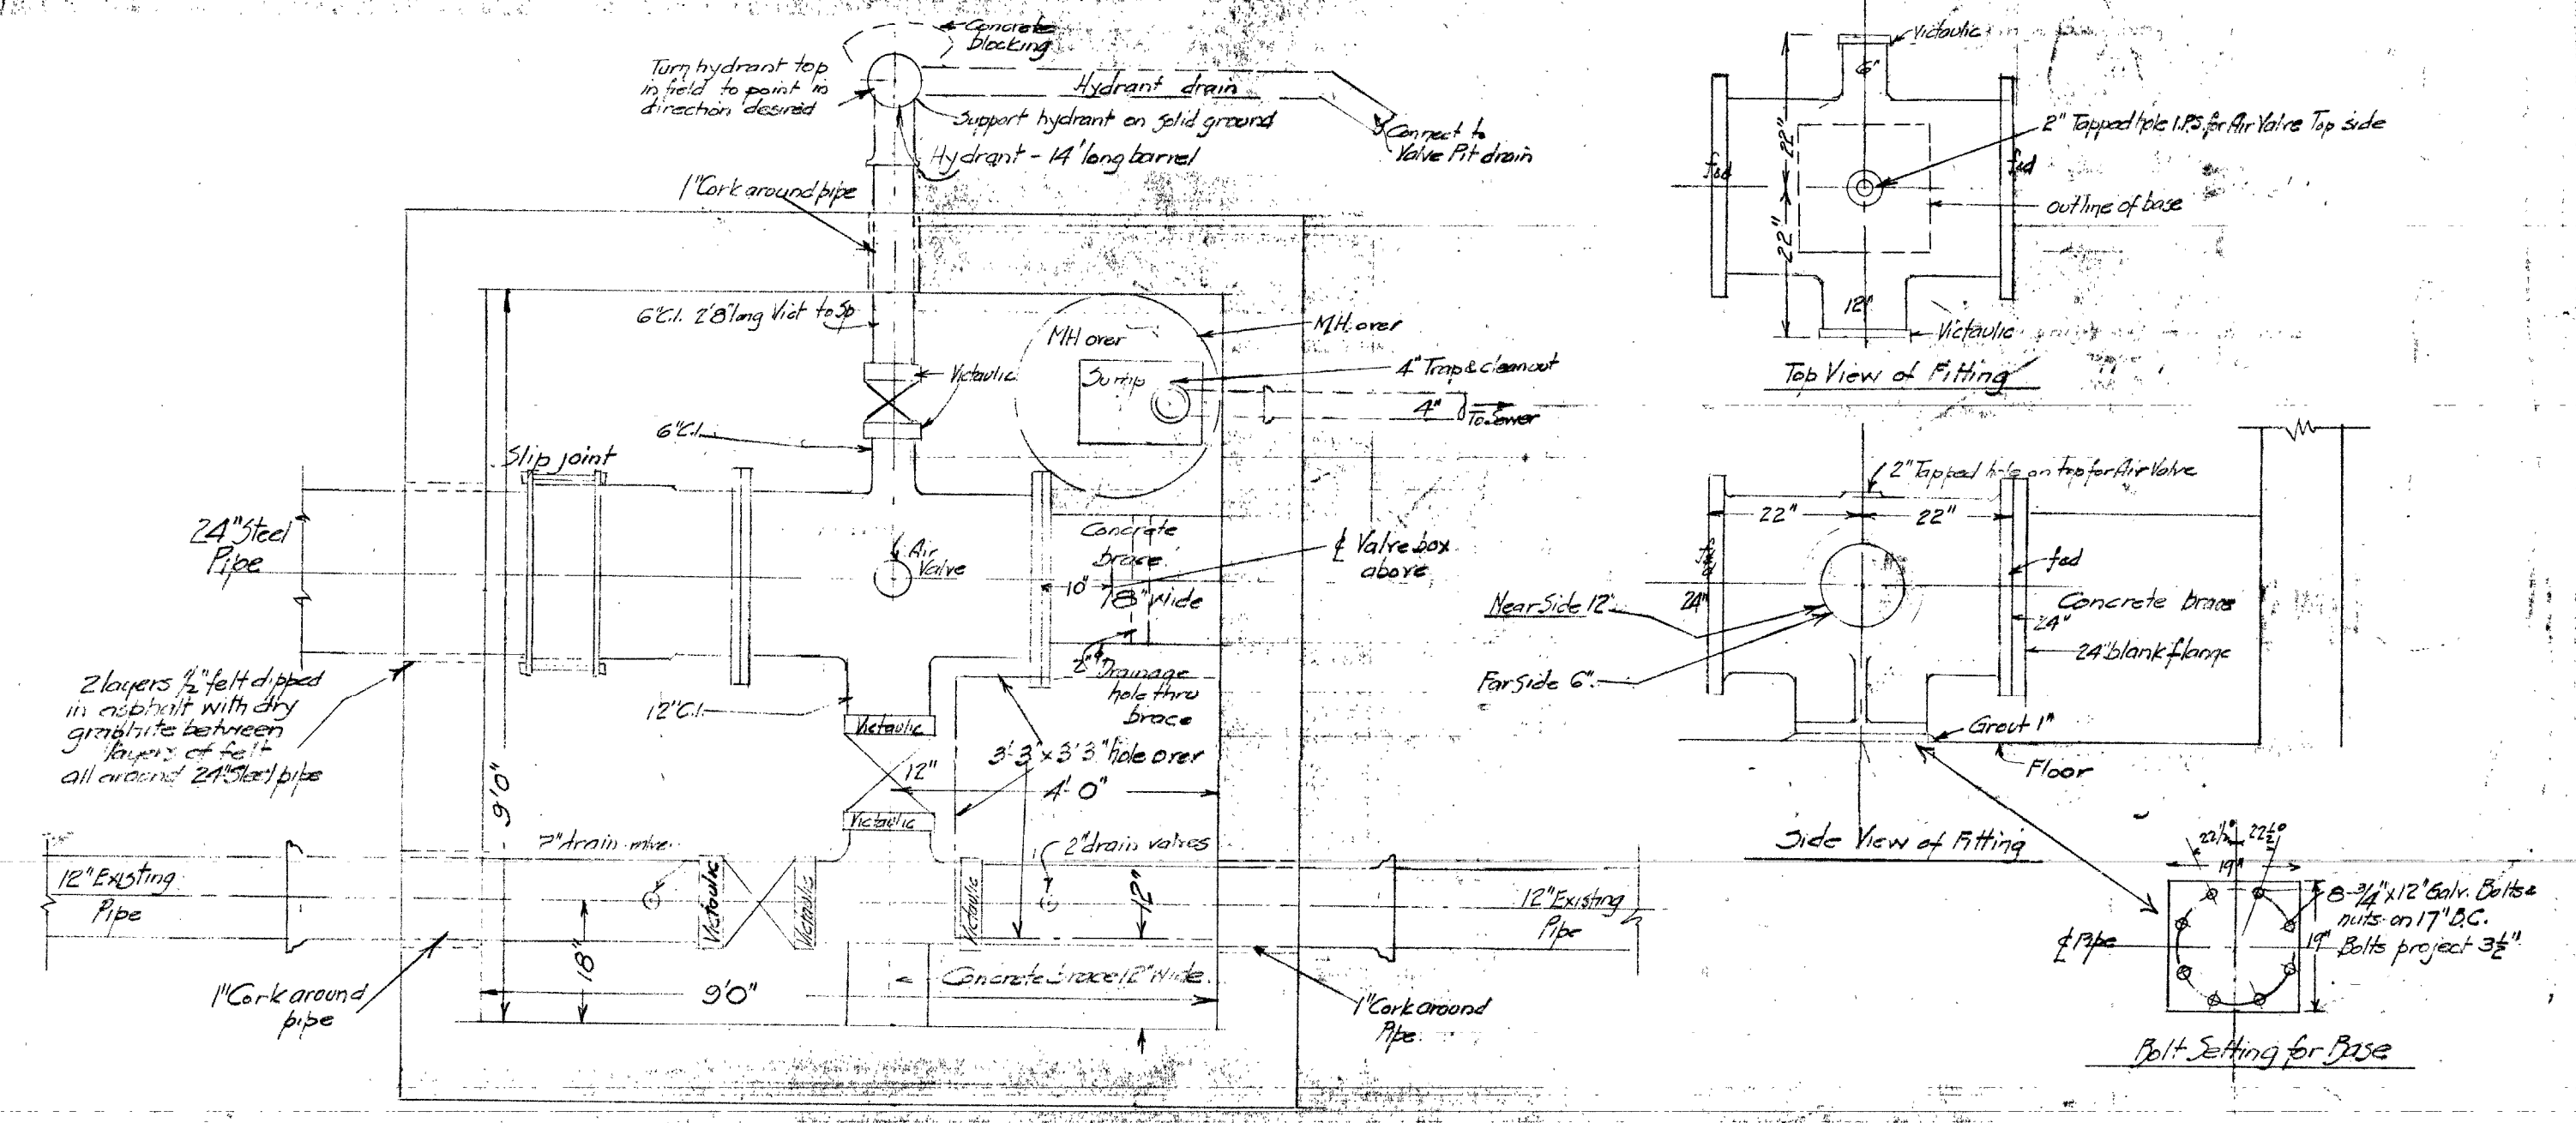 Concrete
blocking
Turn hydrant top
in field to point in
direction desired
Hydrant drain
Support hydrant on solid ground
Connect to
Valve Pit drain
Hydrant - 14' long barrel
1" Cork around pipe
6" C.I. 2'8" long Vict to Sp
MH over
MH over
Sump
4" Trap & cleanout
4"
To Sewer
Victaulic
6" C.I.
Slip joint
24" Steel
Pipe
Air
Valve
Concrete
brace
18" Wide
10"
℄ Valve box
above
2" Drainage
hole thru
brace
2 layers ½" felt dipped
in asphalt with dry
graphite between
layers of felt
all around 24" Steel pipe
12" C.I.
Victaulic
12"
3'-3" x 3'3" hole over
4'-0"
Victaulic
9'0"
2" drain valves
12" Existing
Pipe
Victaulic
Victaulic
Victaulic
12"
12" Existing
Pipe
18"
9'0"
Concrete brace 12" Wide
1" Cork around
pipe
1" Cork around
Pipe
Victaulic
6"
2" Tapped hole I.P.S. for Air Valve Top side
f&d
f&d
outline of base
22"
22"
12"
Victaulic
Top View of Fitting
2" Tapped hole on top for Air Valve
22"
22"
f&d
Near Side 12"
24"
Concrete brace
24"
24" blank flange
Far Side 6"
Grout 1"
Floor
Side View of Fitting
22½°
22½°
19"
8-¾" x 12" Galv. Bolts &
nuts on 17" B.C.
Bolts project 3½"
19"
℄ Pipe
Bolt Setting for Base